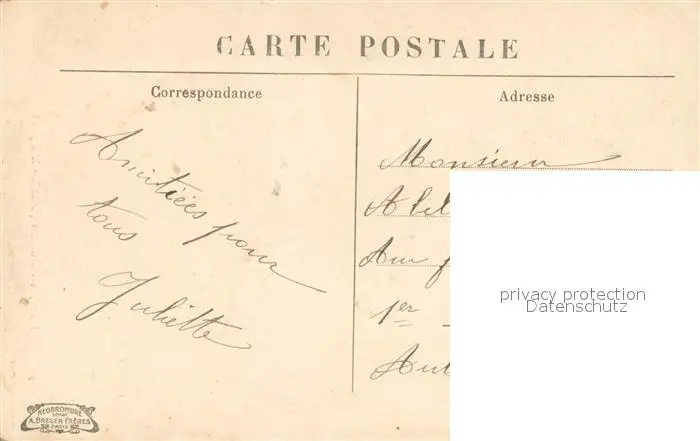 CARTE POSTALE
Correspondance
Amitiées pour
tous
Juliette
Adresse
Monsieur
1er
privacy protection
Datenschutz
NEOBROMURE
A. BREGER FRÈRES
PARIS